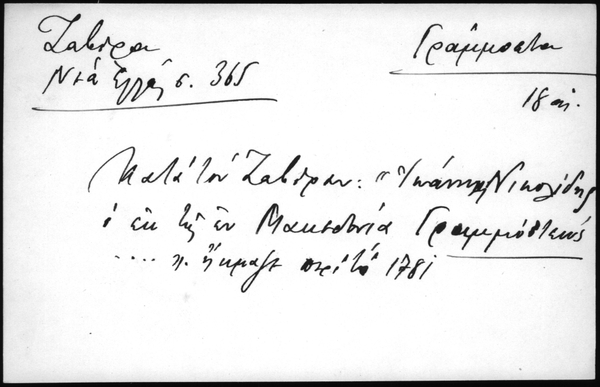 Ζαβίρα
Νέα Ἑλλάς σ. 365
Γράμμοστα
18 αἰ.
Κατά τόν Ζαβίραν: "Ἰωάννης Νικολίδης
ὁ ἐκ τῆς ἐν Μακεδονία Γραμμόστεως
.... κ. ἤκμαζε περί τό 1781